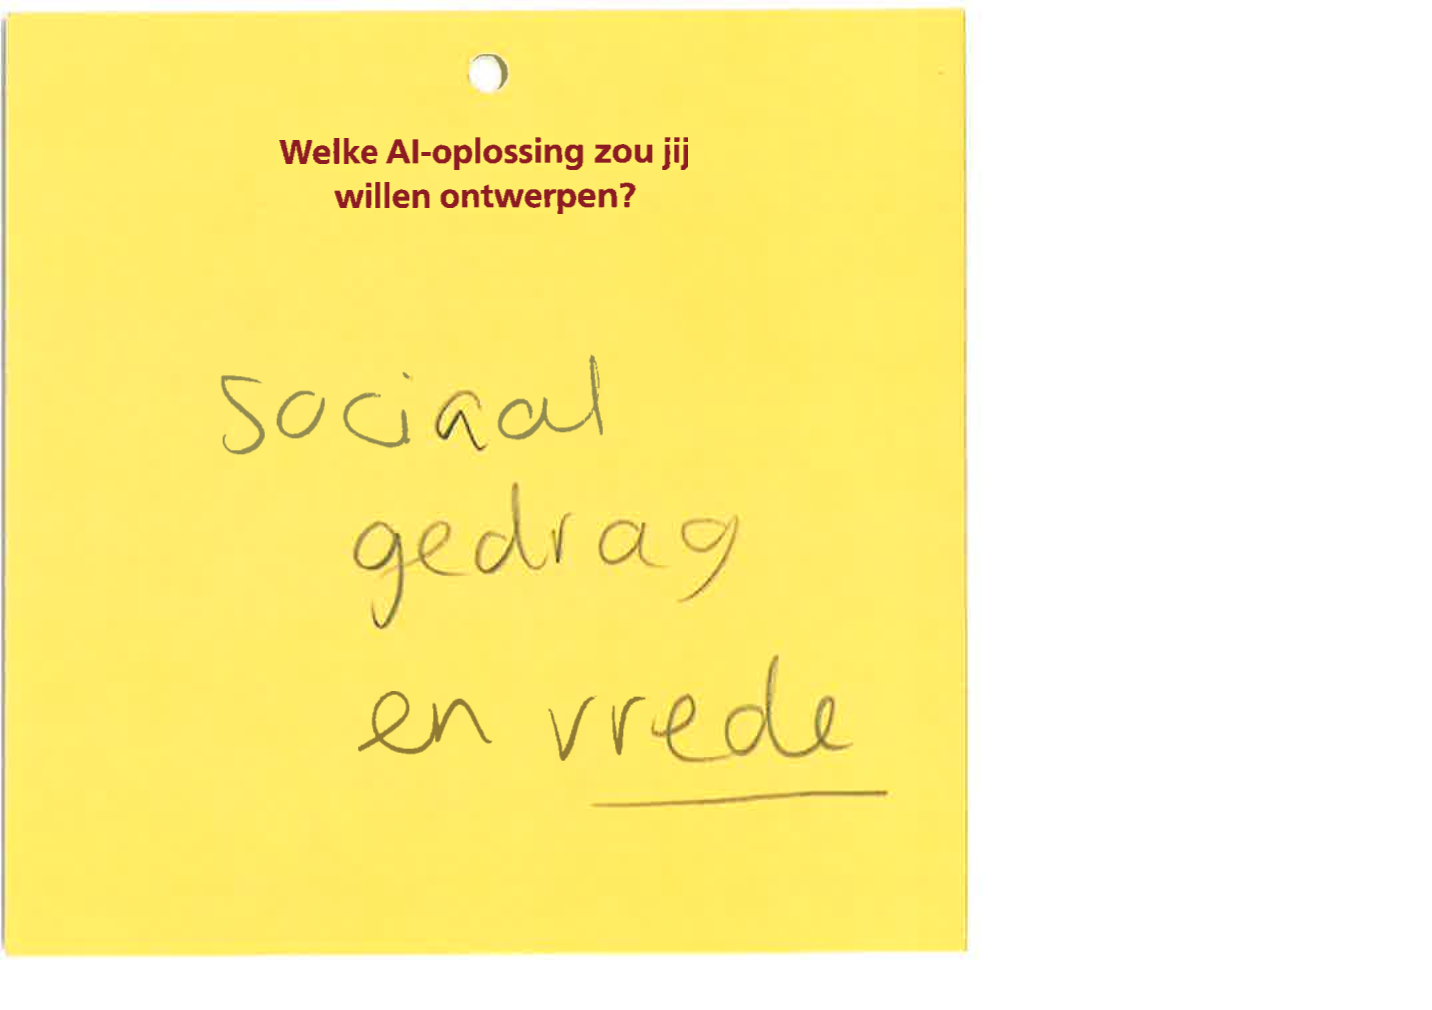 Welke AI-oplossing zou jij
willen ontwerpen?
sociaal
gedrag
en vrede